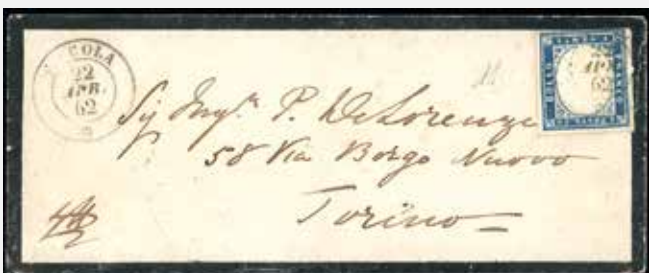 COLA
22
APR.
62
22
APR
62
Sig Ingre P. DeLorenzi
58 Via Borgo Nuovo
Torino